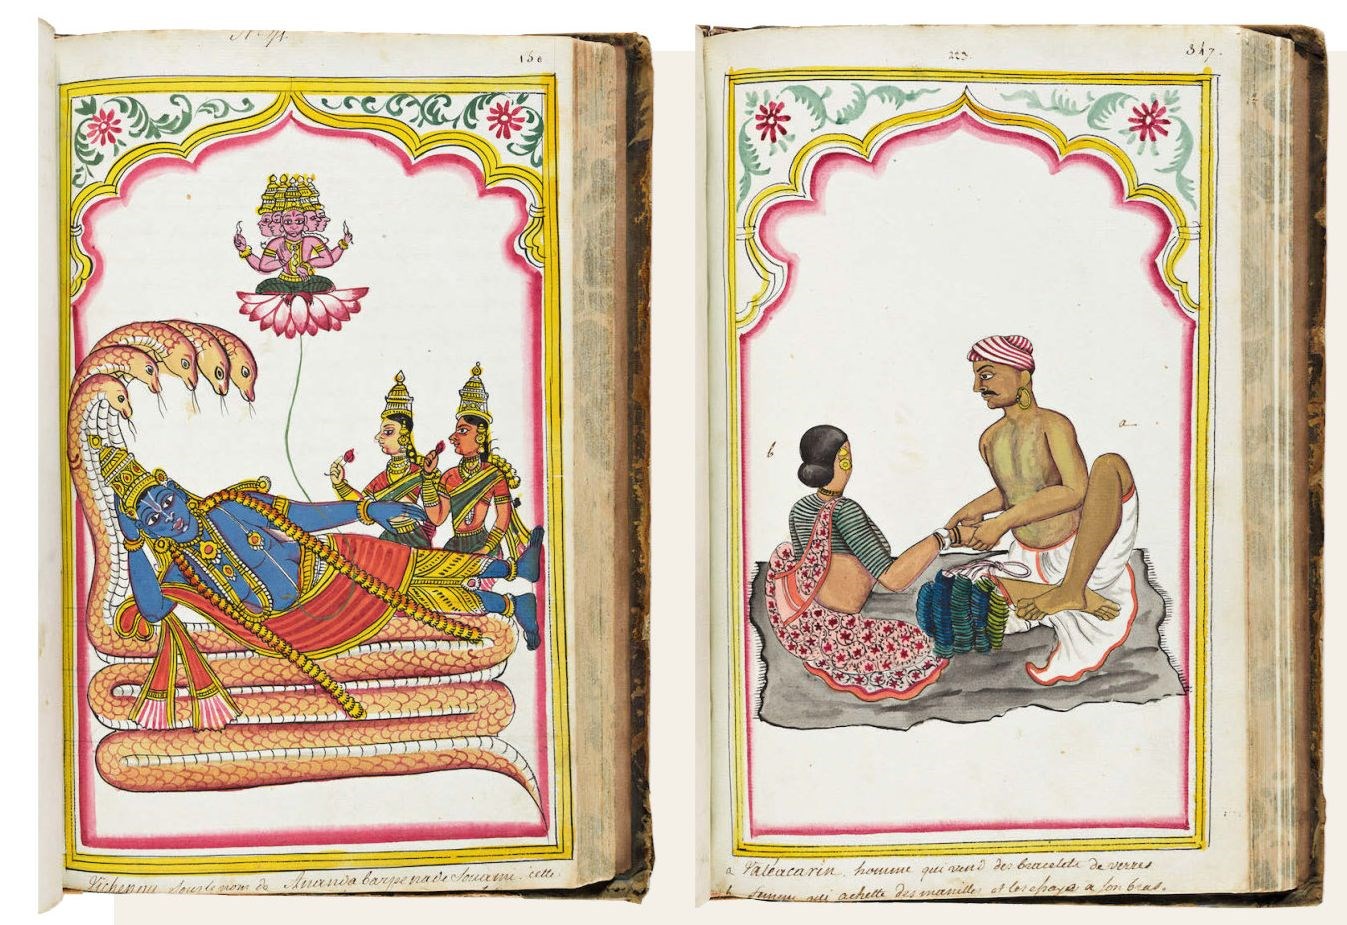 150
Vichenou sous le nom de Ananda barpenade Souami. cette
223.
347.
a
b
a Valéacarin, homme qui vend des bracelets de verres
b femme qui achette des manilles et les essaye a son bras.